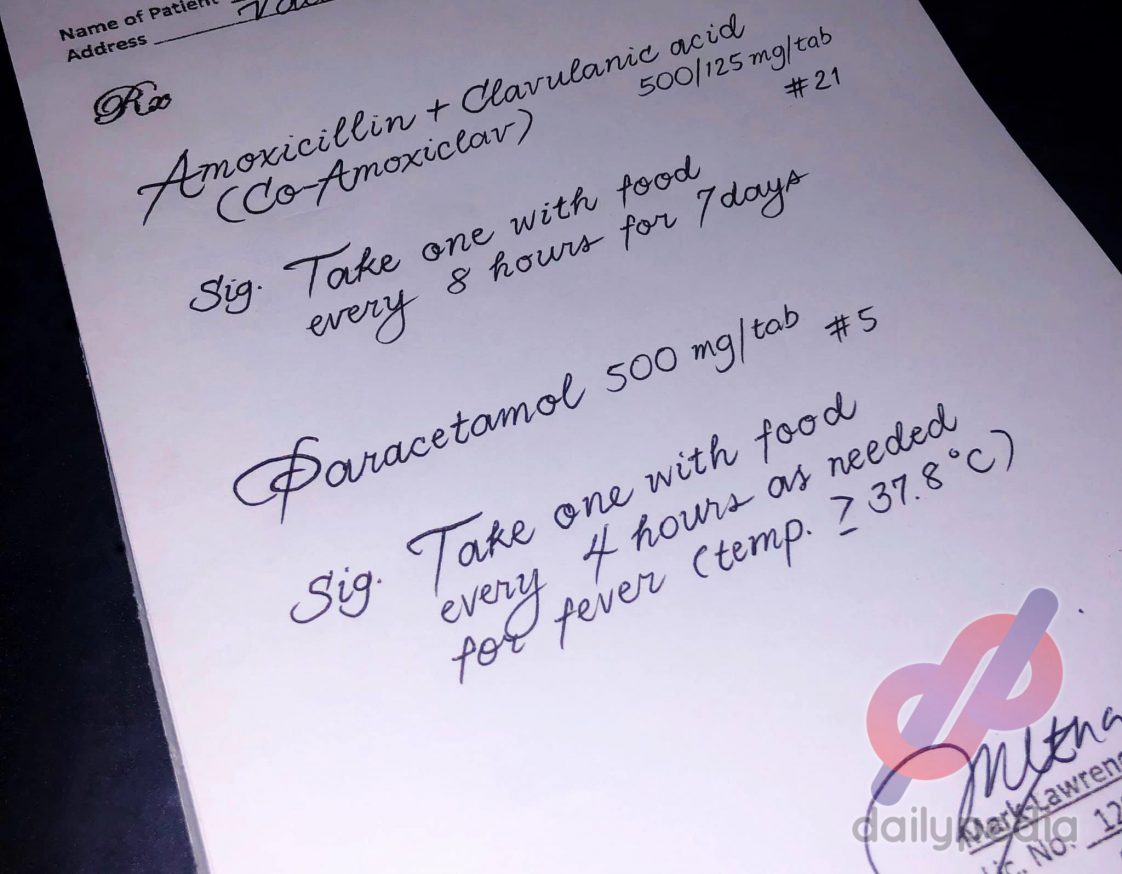 Name of Patient
Address
Rx
Amoxicillin + Clavulanic acid
500/125 mg/tab
(Co-Amoxiclav)
#21
Sig. Take one with food
every 8 hours for 7 days
Paracetamol 500 mg/tab #5
Sig. Take one with food
every 4 hours as needed
for fever (temp. ≥ 37.8°C)
Mark Lawren
Lic. No. 12
dailypedia